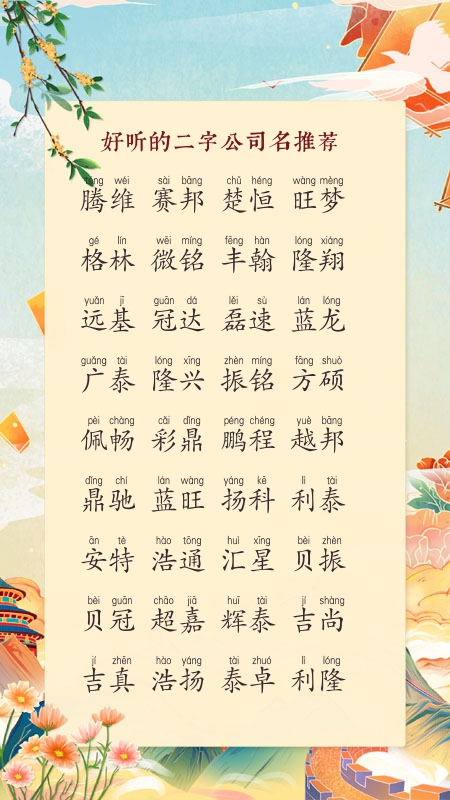 好听的二字公司名推荐
téng wéi sài bāng chǔ héng wàng mèng
腾维 赛邦 楚恒 旺梦
gé lín wēi míng fēng hàn lóng xiáng
格林 微铭 丰翰 隆翔
yuǎn jī guān dá lěi sù lán lóng
远基 冠达 磊速 蓝龙
guǎng tài lóng xīng zhèn míng fāng shuò
广泰 隆兴 振铭 方硕
pèi chàng cǎi dǐng péng chéng yuè bāng
佩畅 彩鼎 鹏程 越邦
dǐng chí lán wàng yáng kē lì tài
鼎驰 蓝旺 扬科 利泰
ān tè hào tōng huì xīng bèi zhèn
安特 浩通 汇星 贝振
bèi guān chāo jiā huī tài jí shàng
贝冠 超嘉 辉泰 吉尚
jí zhēn hào yáng tài zhuó lì lóng
吉真 浩扬 泰卓 利隆